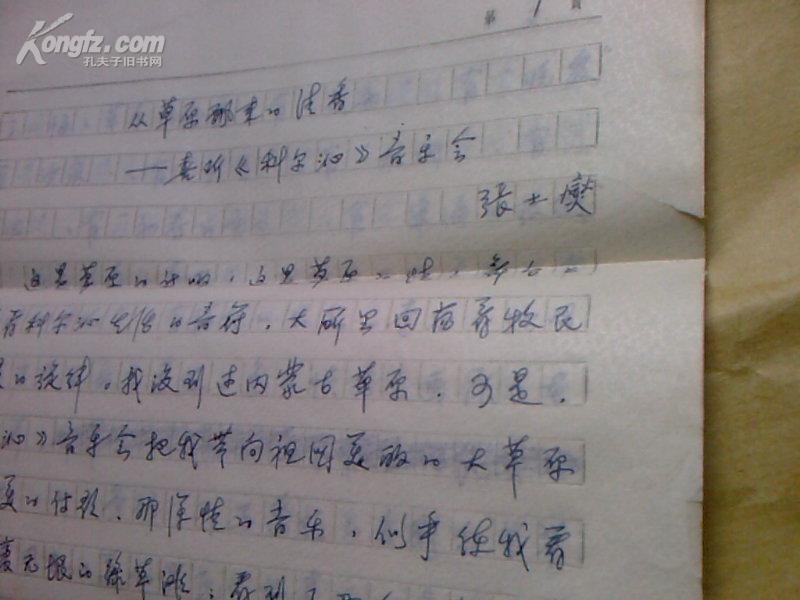 Kongfz.com
孔夫子旧书网
第 1 頁
从草原飘来的清香
——喜听《科尔沁》音乐会
張士燮
这是草原的诗歌，这是草原
着科尔沁生活的音符，大厅里回荡着牧民
的旋律。我没到过内蒙古草原，可是，
沁》音乐会把我带向祖国美丽的大草原
美的付歌，那深情的音乐，似乎使我看
无垠的绿草滩，看到了